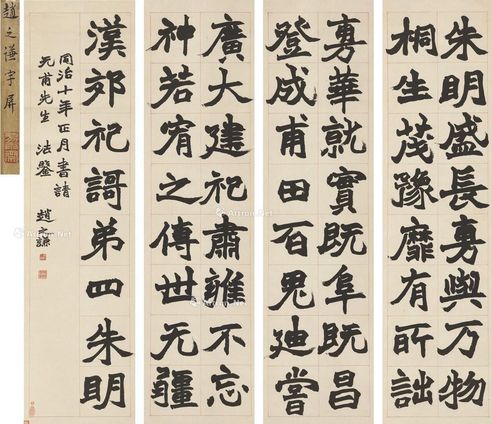 朱明盛長旉與万物
桐生茂豫靡有所詘
旉華就實既阜既昌
登成甫田百鬼迪嘗
廣大建祀肅雝不忘
神若宥之傳世无疆
漢郊祀哥弟四朱明
同治十年正月書請
元甫先生 法鑒 趙之謙
趙之謙字屏
Artron.Net
Artron.Net